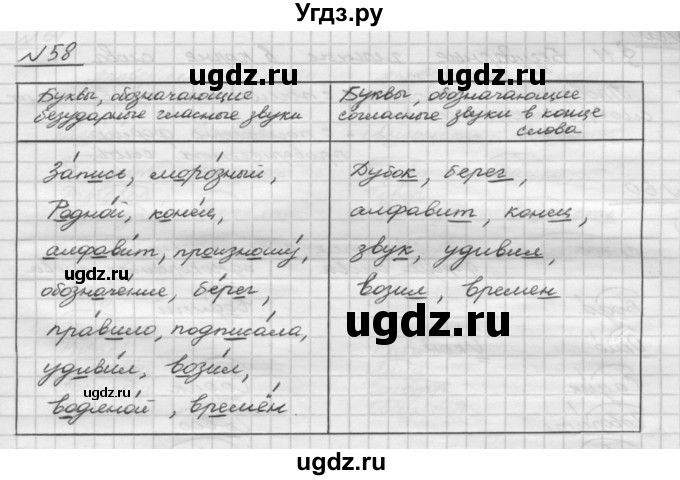 Угдз.ру
№58
Буквы, обозначающие
безударные гласные звуки
Буквы, обозначающие
согласные звуки в конце
слова
ugdz.ru
ugdz.ru
За́пись, моро́зный,
Родно́й, коне́ц,
алфави́т, произношу́,
ugdz.ru
обозначе́ние, бе́рег,
пра́вило, подписа́ла,
удиви́л, вози́л,
ugdz.ru
водяно́й, времён.
Дубок, берег,
алфавит, конец,
звук, удивил,
возил, времён
ugdz.ru
ugdz.ru